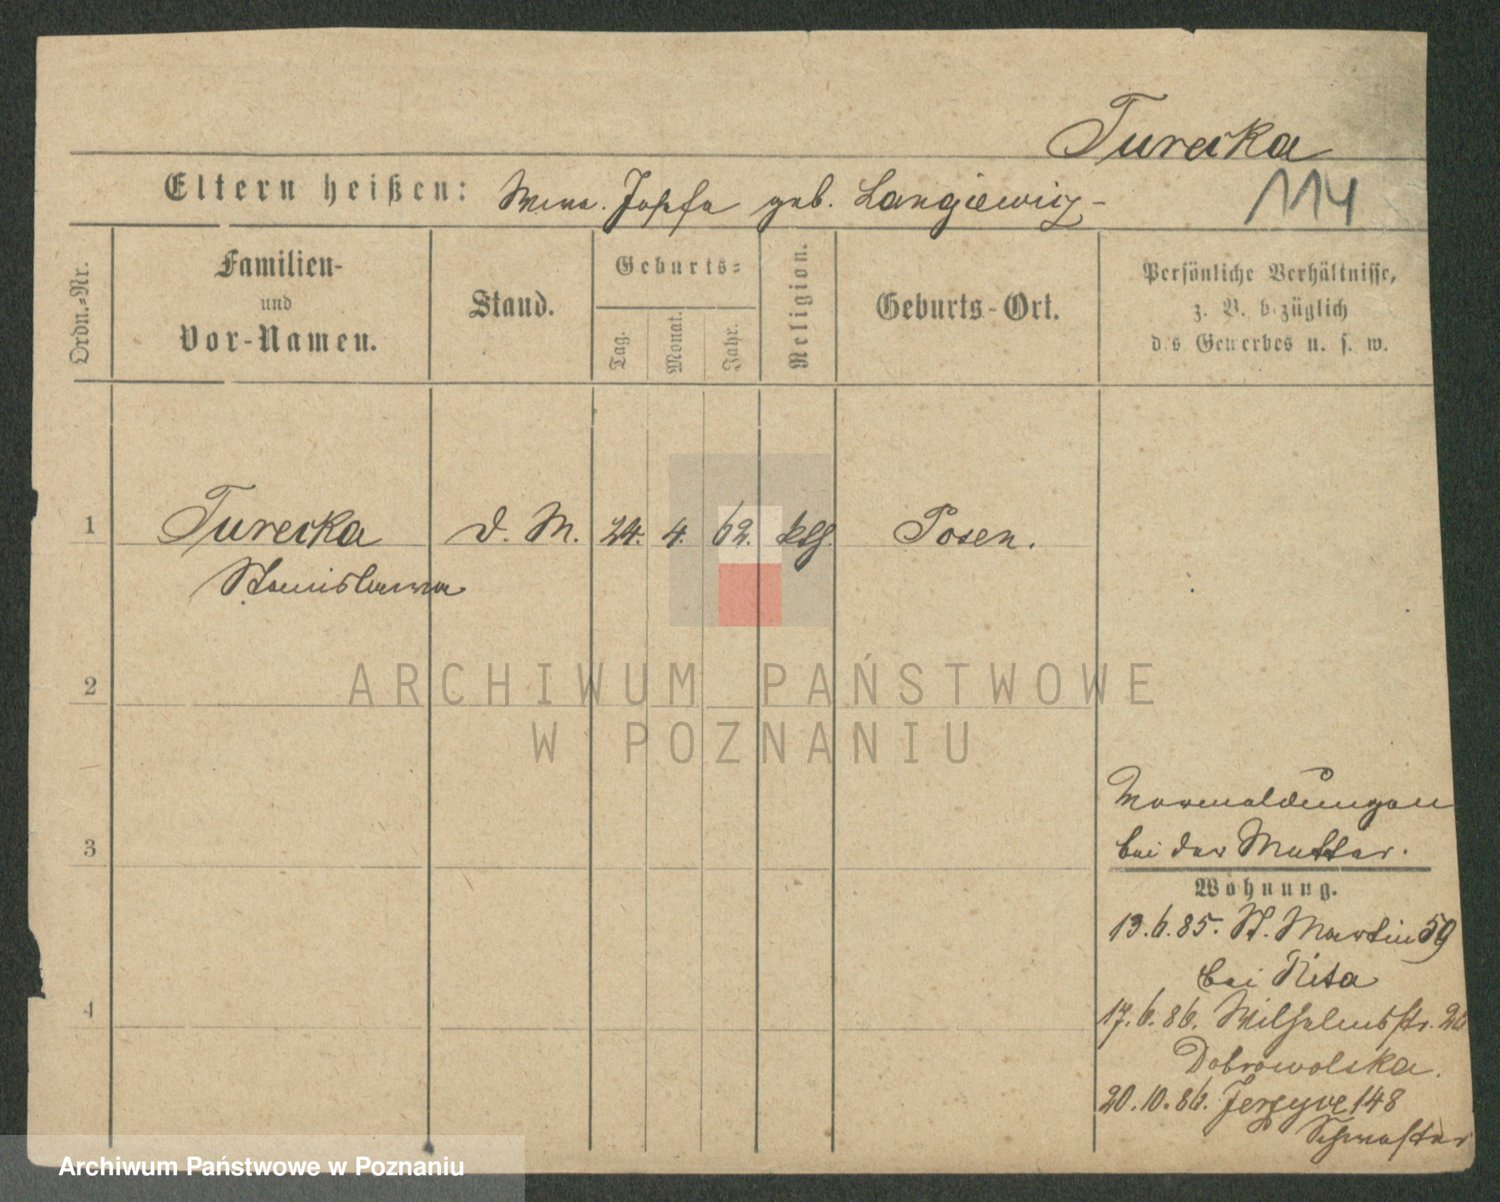 Turecka
Eltern heißen: Wwe. Josefa geb. Langiewicz-
114
Ordn.-Nr.
Familien-
und
Vor-Namen.
Stand.
Geburts-
Tag.
Monat.
Jahr.
Religion.
Geburts-Ort.
Persönliche Verhältnisse,
z. B. bezüglich
des Gewerbes u. s. w.
1 Turecka d. M. 24. 4. 62. ktl. Posen.
Stanislawa
ARCHIWUM PAŃSTWOWE
W POZNANIU
2
3
4
Vormeldungen
bei der Mutter.
Wohnung.
13.6.85. St. Martin 59
bei Nita
17.6.86. Wilhelmsstr.
Dobrowolska.
20.10.86. Jerzyce 148
Schwester
Archiwum Państwowe w Poznaniu